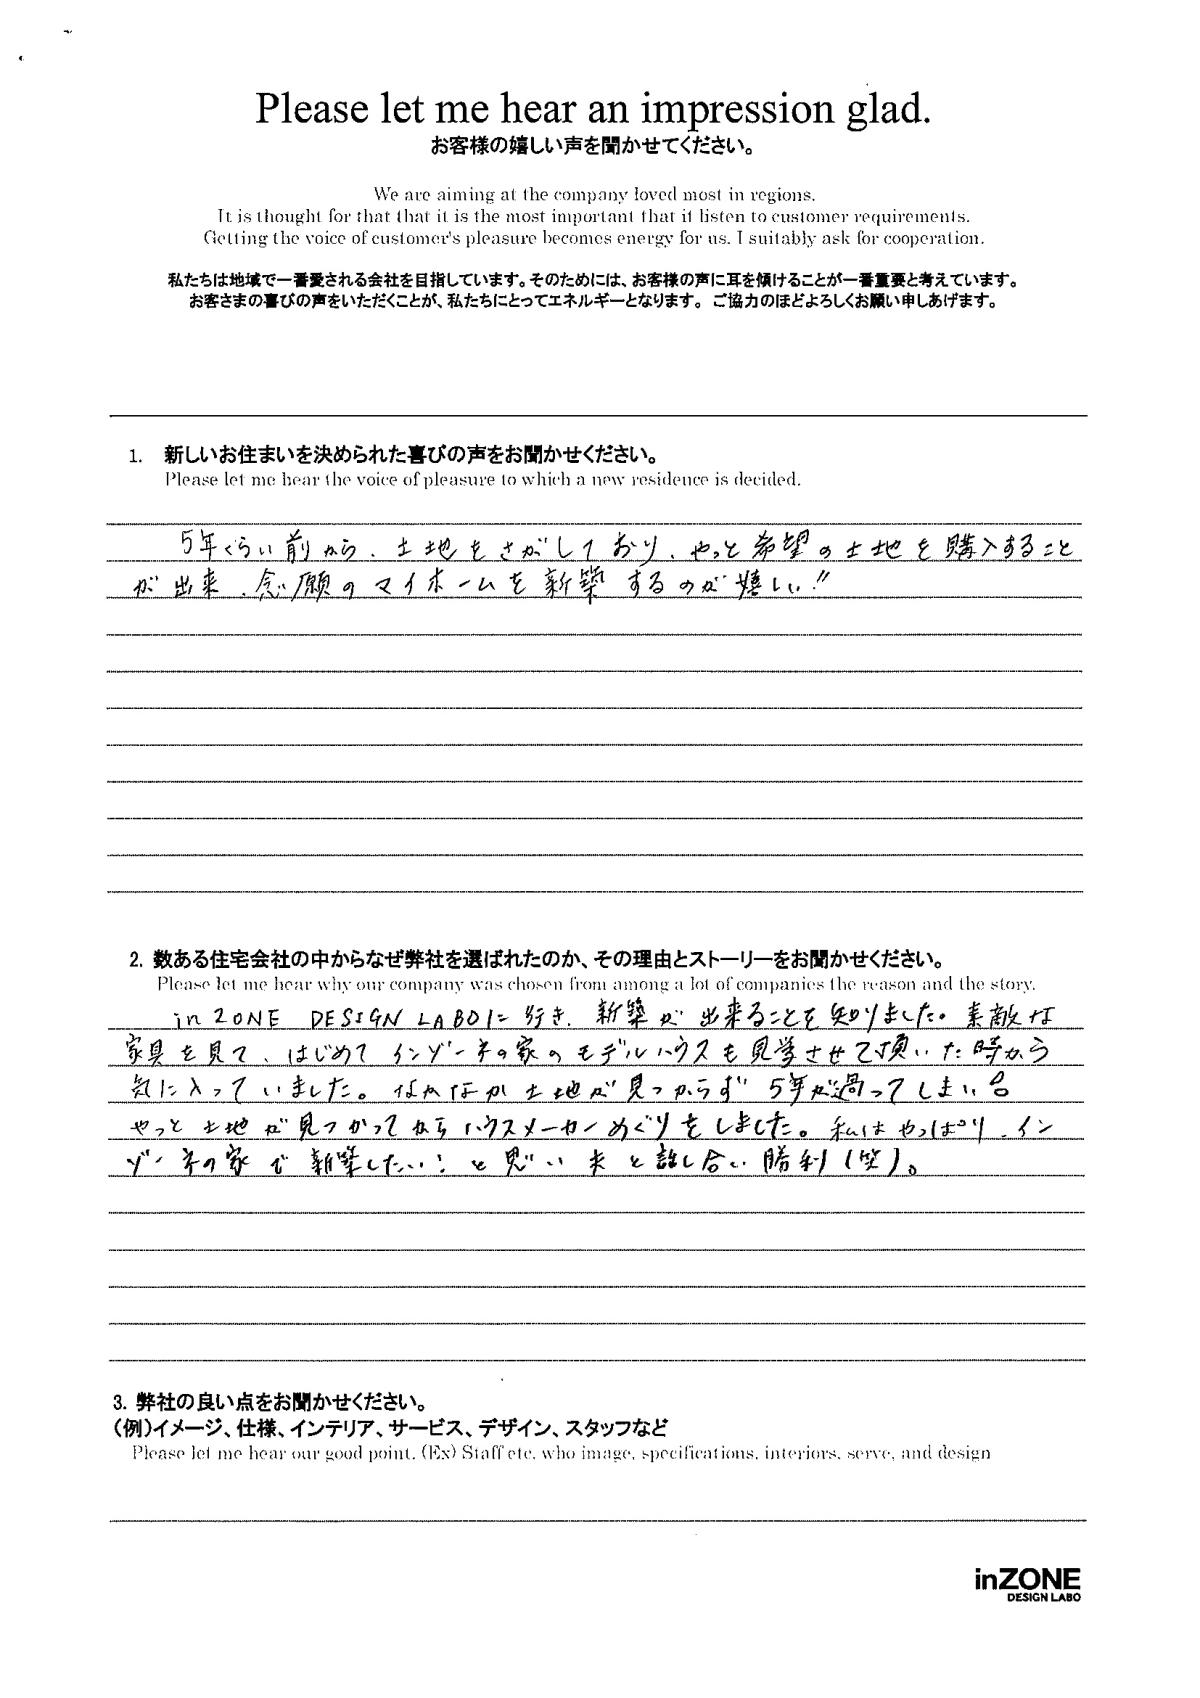 Please let me hear an impression glad.
お客様の嬉しい声を聞かせてください。
We are aiming at the company loved most in regions.
It is thought for that that it is the most important that it listen to customer requirements.
Getting the voice of customer's pleasure becomes energy for us. I suitably ask for cooperation.
私たちは地域で一番愛される会社を目指しています。そのためには、お客様の声に耳を傾けることが一番重要と考えています。
お客さまの喜びの声をいただくことが、私たちにとってエネルギーとなります。 ご協力のほどよろしくお願い申しあげます。
1. 新しいお住まいを決められた喜びの声をお聞かせください。
Please let me hear the voice of pleasure to which a new residence is decided.
5年くらい前から、土地をさがしており、やっと希望の土地を購入すること
が出来、念願のマイホームを新築するのが嬉しい!!
2. 数ある住宅会社の中からなぜ弊社を選ばれたのか、その理由とストーリーをお聞かせください。
Please let me hear why our company was chosen from among a lot of companies the reason and the story.
in ZONE DESIGN LABOに行き、新築が出来ることを知りました。素敵な
家具を見て、はじめてインゾーネの家のモデルハウスも見学させて頂いた時から
気に入っていました。なかなか土地が見つからず 5年が過ってしまい
やっと土地が見つかってからハウスメーカーめぐりをしました。私はやっぱり、イン
ゾーネの家で新築したい!と思い夫と話し合い勝利(笑)。
3. 弊社の良い点をお聞かせください。
(例)イメージ、仕様、インテリア、サービス、デザイン、スタッフなど
Please let me hear our good point. (Ex) Staff etc. who image, specifications, interiors, serve, and design
inZONE
DESIGN LABO